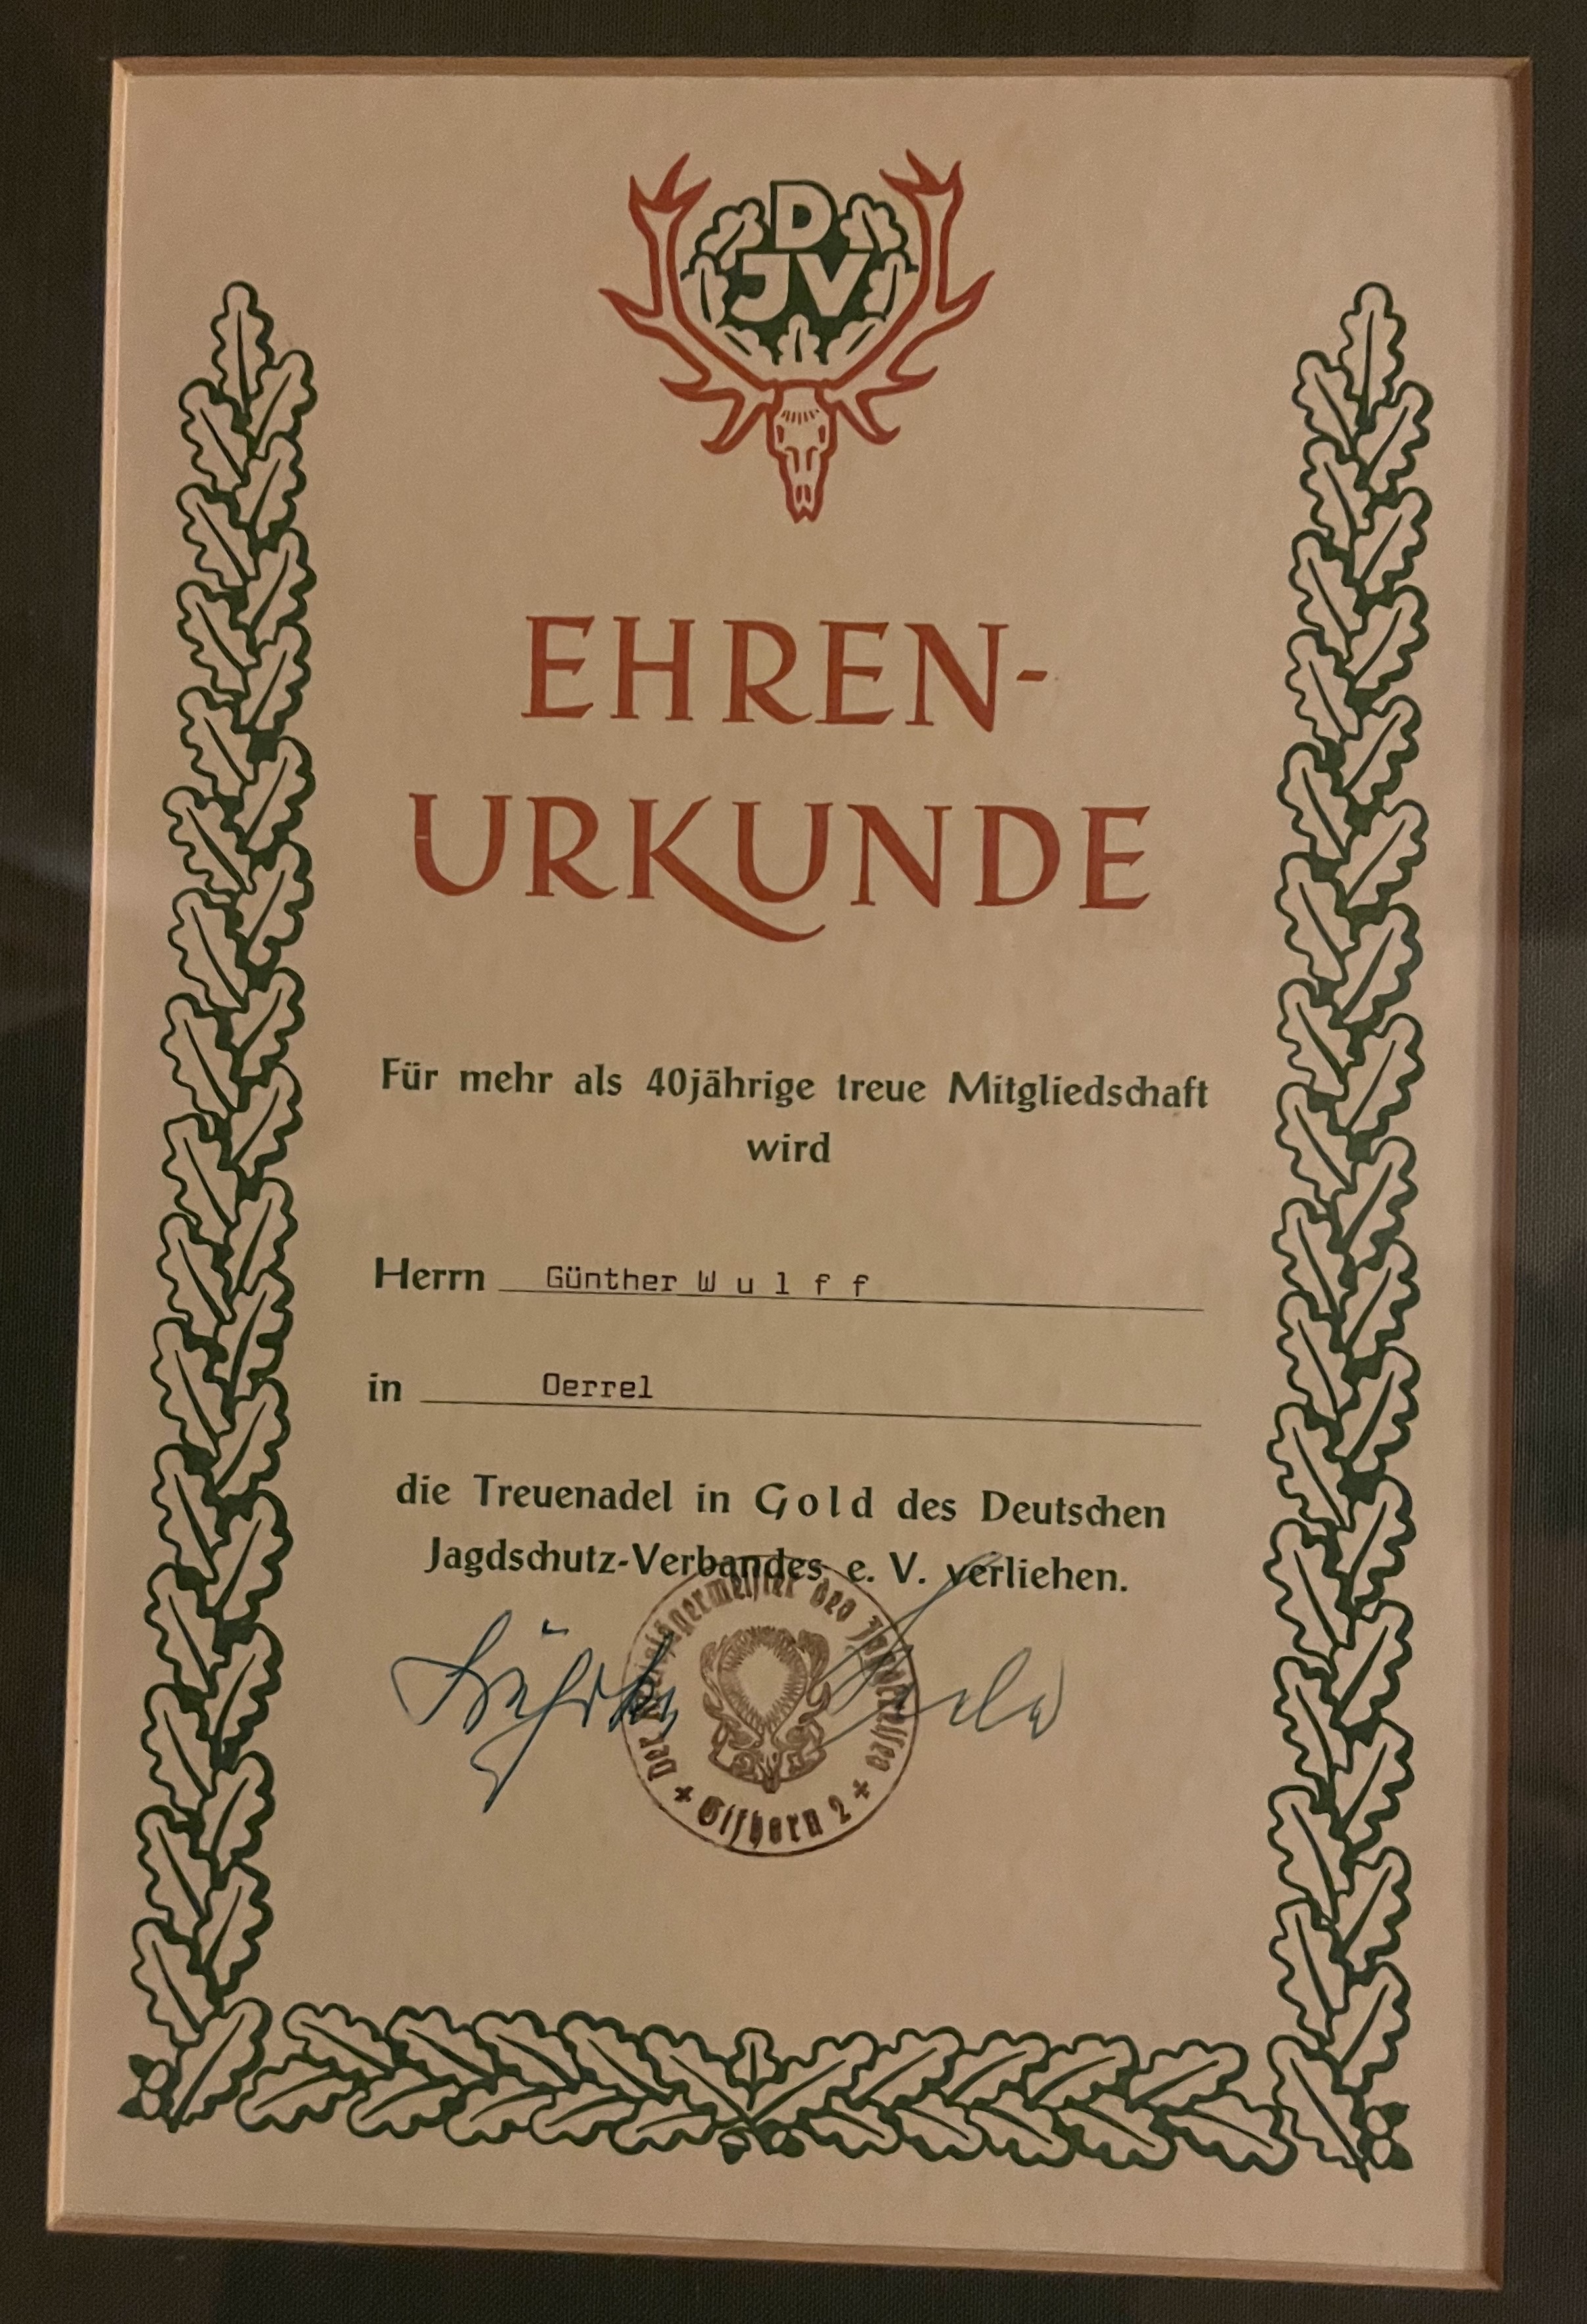 D
JV
EHREN-
URKUNDE
Für mehr als 40jährige treue Mitgliedschaft
wird
Herrn Günther W u l f f
in Oerrel
die Treuenadel in G o l d des Deutschen
Jagdschutz-Verbandes e. V. verliehen.
Der Kreisjägermeister des Jagdkreises
+ Gifhorn 2 +